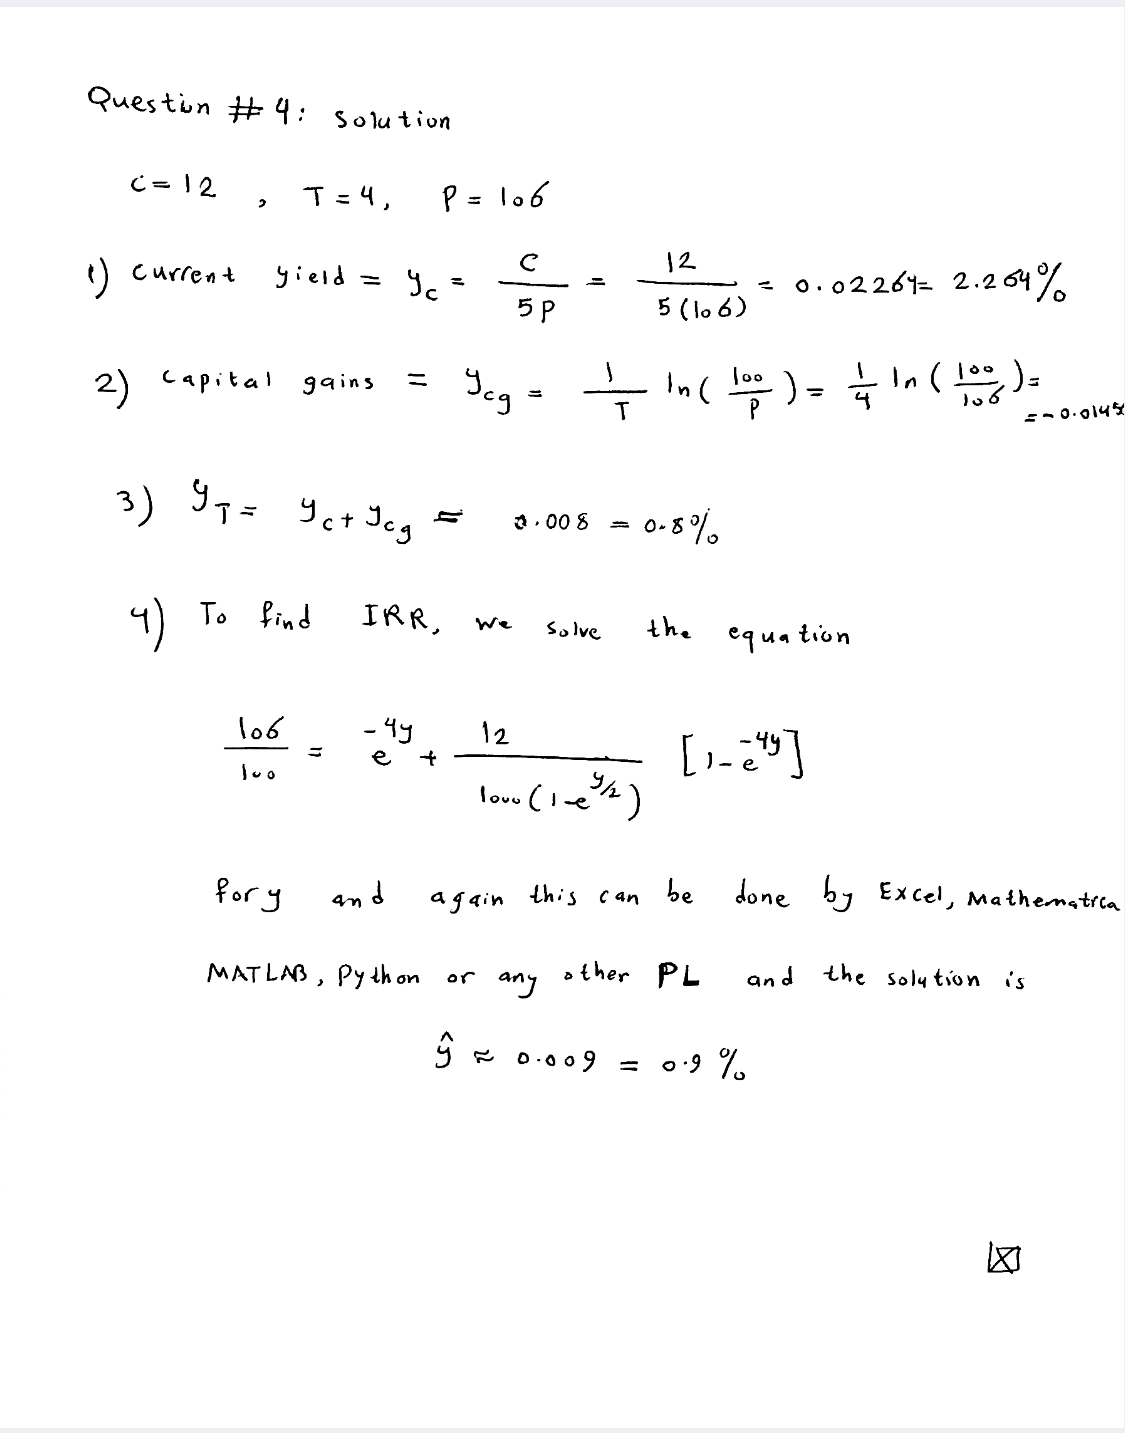 Question # 4: Solution
C = 12 , T = 4, P = 106
1) Current yield = y_c = C / 5P = 12 / 5(106) = 0.02264 = 2.264%
2) Capital gains = y_cg = 1/T ln(100/P) = 1/4 ln(100/106) =
= -0.0145
3) y_T = y_c + y_cg = 0.008 = 0.8%
4) To find IRR, we solve the equation
106/100 = e^{-4y} + 12 / 1000(1-e^{y/2}) [1-e^{-4y}]
for y and again this can be done by Excel, Mathematica
MATLAB, Python or any other PL and the solution is
ŷ ≈ 0.009 = 0.9 %